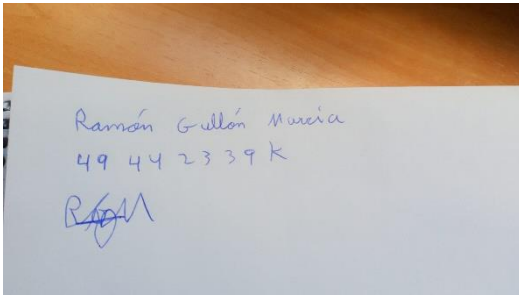 Ramón Gullón Murcia
49 44 23 39 K
RGM